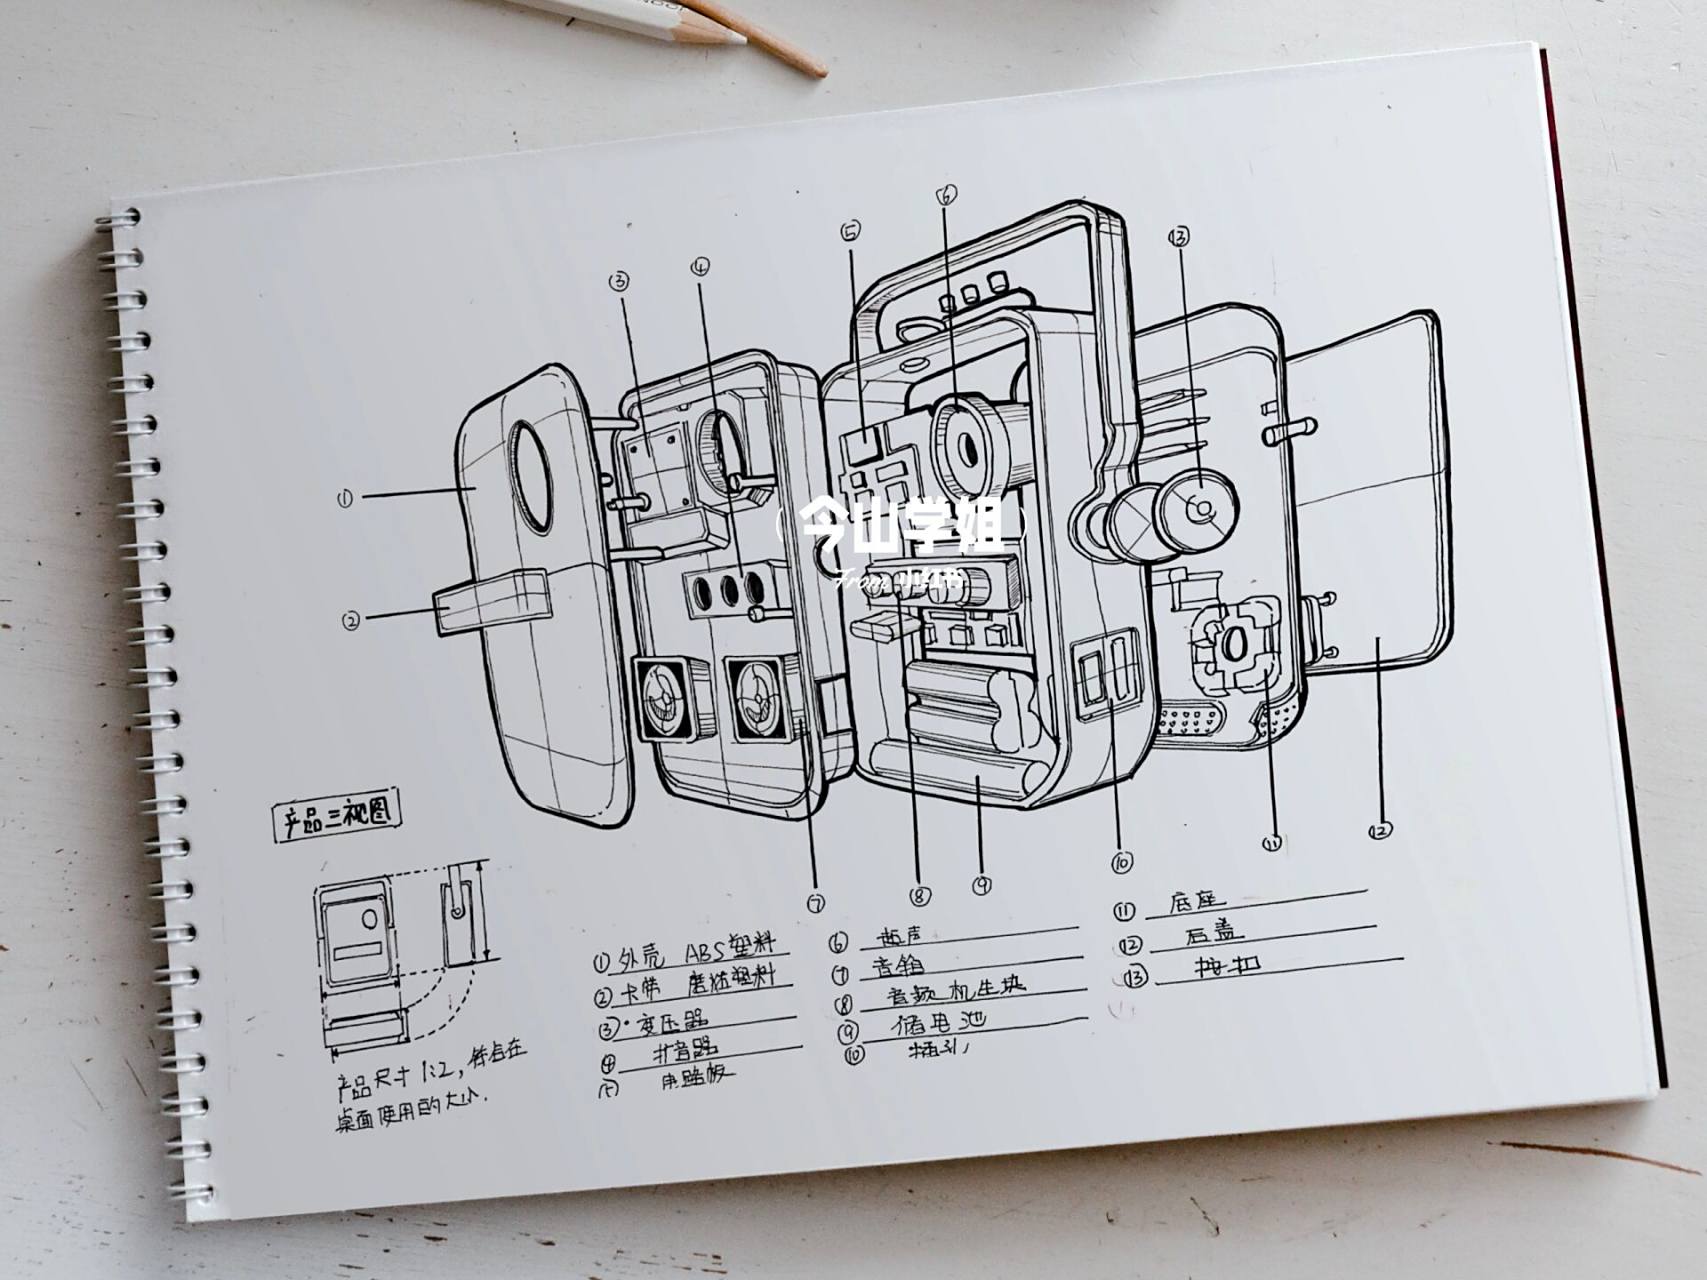 ⑥
⑤
⑬
③
④
①
②
今山学姐
From 小红书
⑫
⑪
⑩
⑨
⑧
⑦
产品三视图
产品尺寸 1:2, 符合在
桌面使用的大小.
① 外壳 ABS塑料
② 卡带 磨砂塑料
③ 变压器
④ 扩音器
⑤ 电路板
⑥
⑦ 音箱
⑧ 音频机生块
⑨ 储电池
⑩ 插孔
⑪ 底座
⑫ 后盖
⑬ 按扣